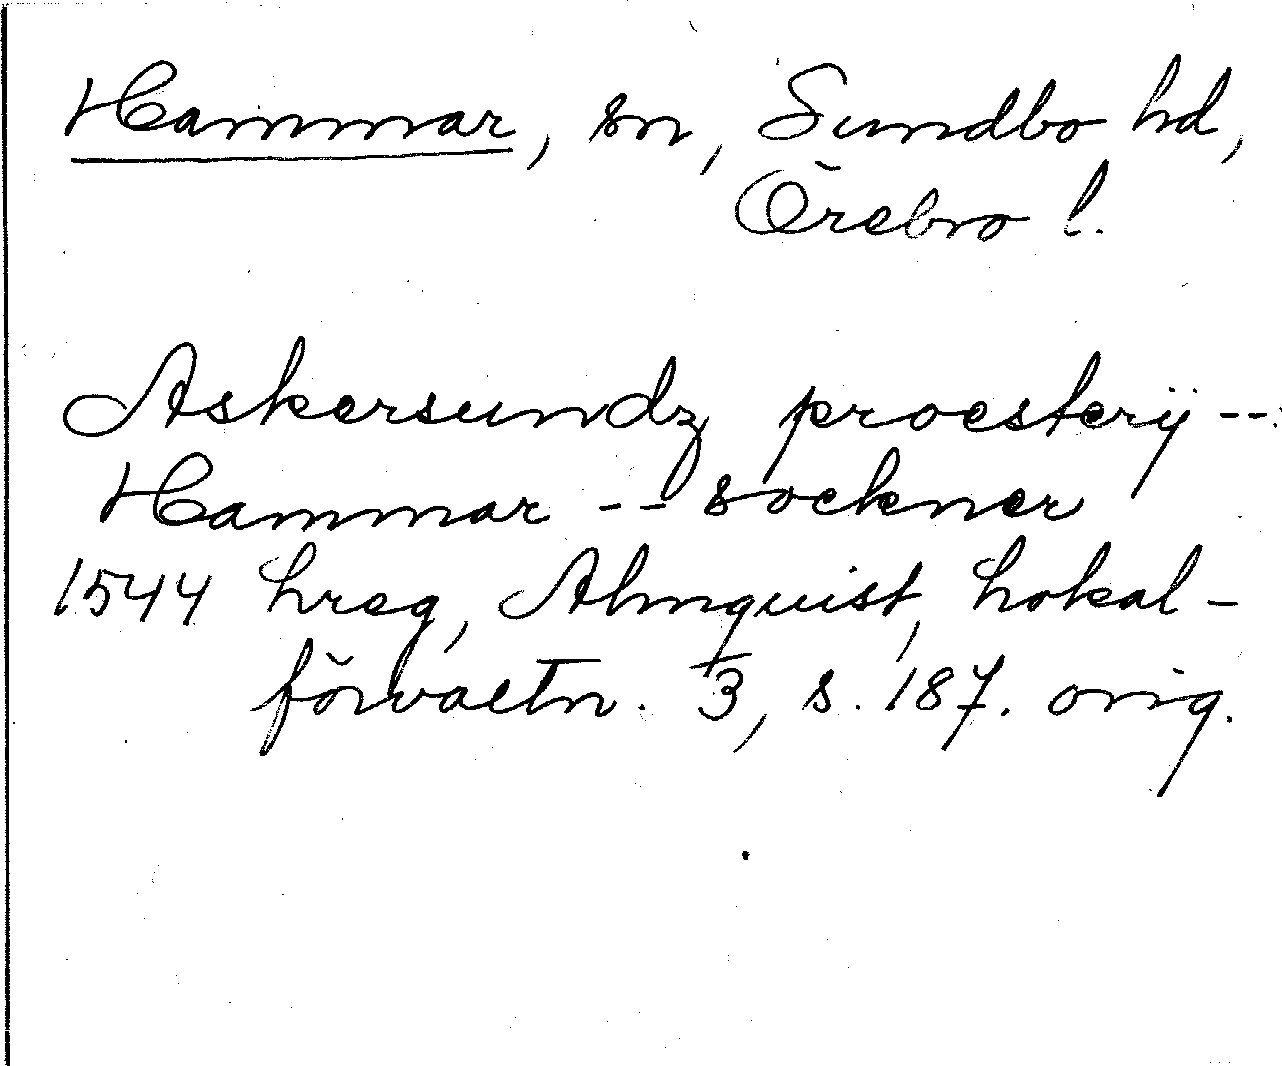 Hammar, sn, Sundbo hd,
Örebro l.
Askersundz proesterij --
Hammar -- sockner
1544 hreg, Almquist, Lokal-
förvaltn. 3, s. 187. orig.